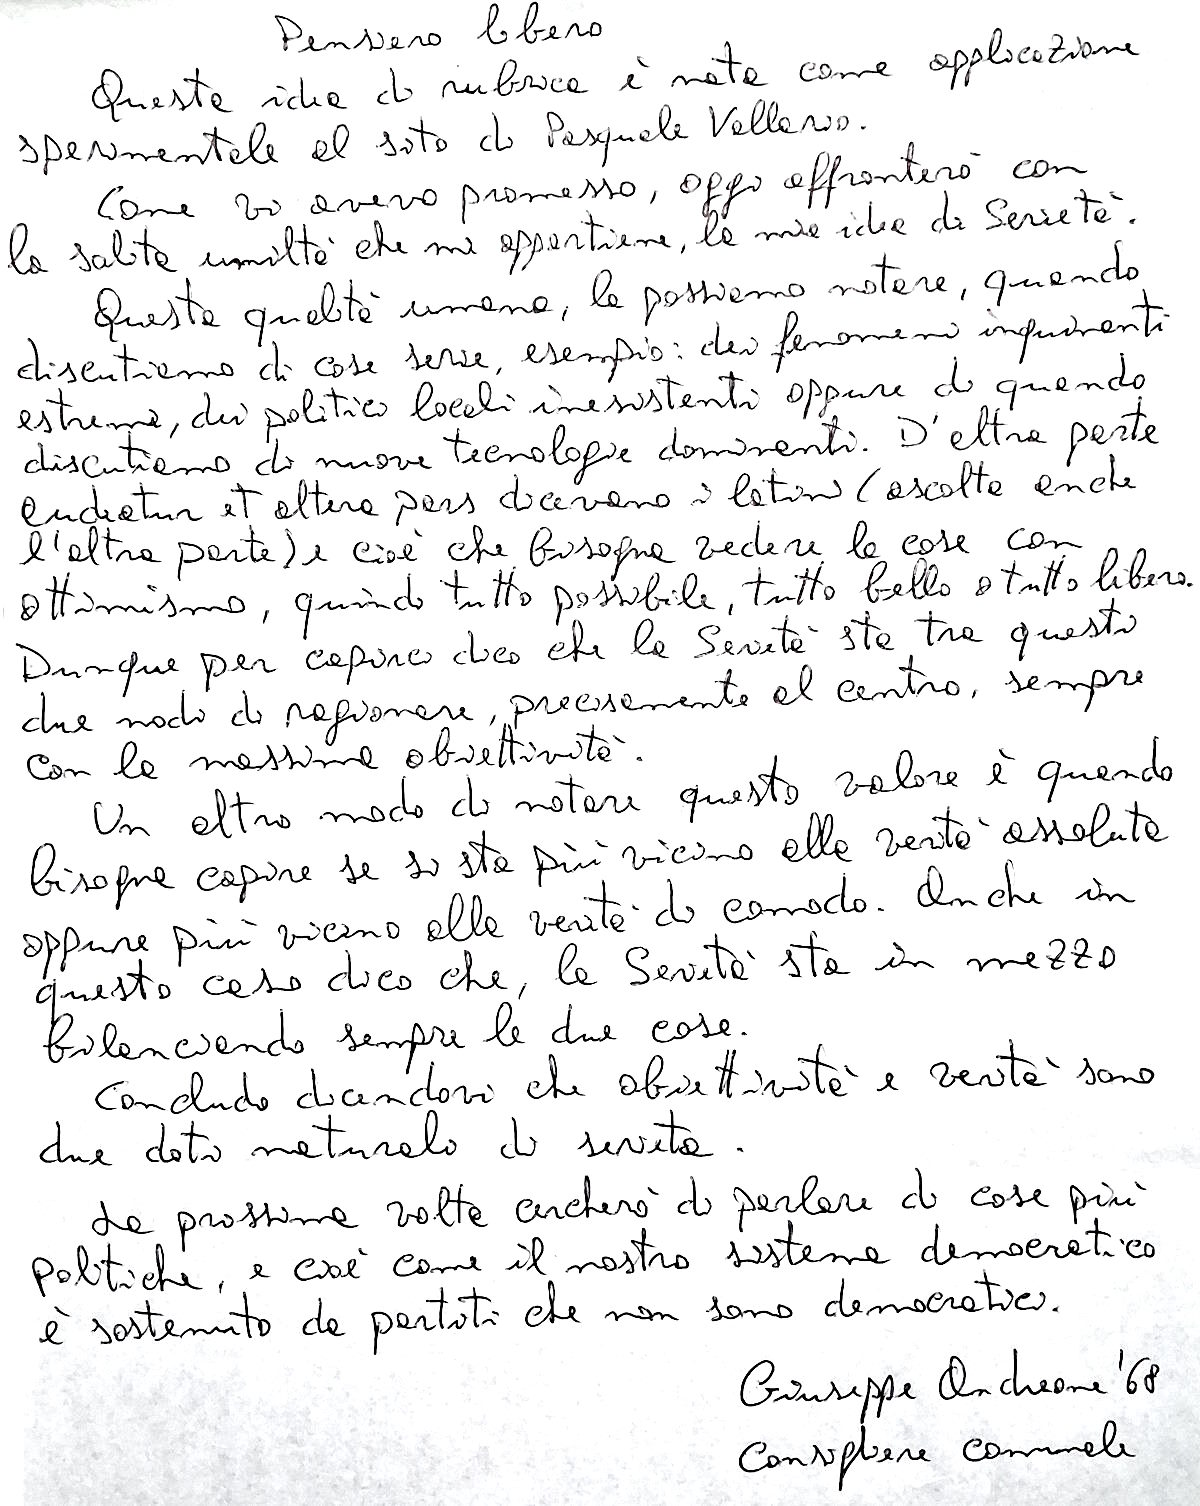 Pensiero libero
Questa idea di rubrica è nata come applicazione
sperimentale al sito di Pasquale Vallario.
Come vi avevo promesso, oggi affronterò con
la solita umiltà che mi appartiene, la mia idea di Serietà.
Questa qualità umana, la possiamo notare, quando
discutiamo di cose serie, esempio: dei fenomeni inquinanti
estremi, dei politici locali inesistenti oppure di quando
discutiamo di nuove tecnologie dominanti. D'altra parte
audiatur et altera pars dicevano i latini (ascolta anche
l'altra parte) e cioè che bisogna vedere le cose con
ottimismo, quindi tutto possibile, tutto bello e tutto libero.
Dunque per capirci dico che la Serietà sta tra questi
due modi di ragionare, precisamente al centro, sempre
con la massima obiettività.
Un altro modo di notare questo valore è quando
bisogna capire se si sta più vicino alla verità assoluta
oppure più vicino alla verità di comodo. Anche in
questo caso dico che, la Serietà sta in mezzo
bilanciando sempre le due cose.
Concludo dicendovi che obiettività e verità sono
due doti naturali di serietà.
La prossima volta cercherò di parlare di cose più
politiche, e cioè come il nostro sistema democratico
è sostenuto da partiti che non sono democratici.
Giuseppe Andreone '68
Consigliere comunale